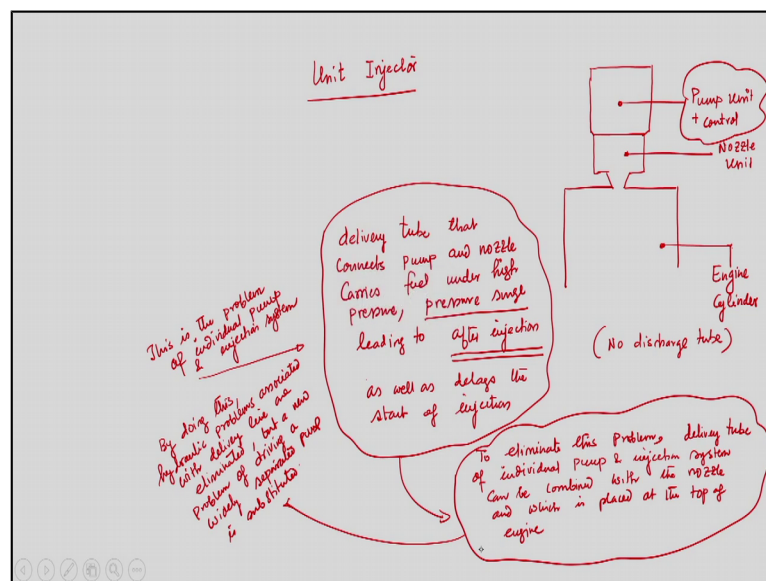 Unit Injector
Pump Unit
+ control
Nozzle
Unit
Engine
Cylinder
(No discharge tube)
delivery tube that
connects pump and nozzle
Carries fuel under high
pressure, pressure surge
leading to after injection
as well as delays the
start of injection
This is the problem
of individual pump
& injection system
By doing this,
hydraulic problems associated
with delivery line are
eliminated, but a new
problem of driving a
widely separated pump
is substituted.
To eliminate this problem, delivery tube
of individual pump & injection system
can be combined with the nozzle
and which is placed at the top of
engine